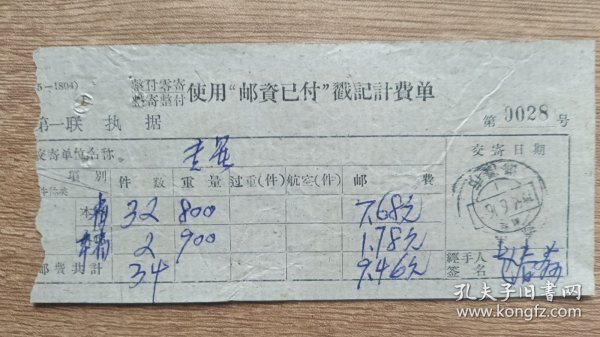 5—1804)
整付零寄
整寄整付
使用“邮資已付”戳記計費单
第一联 执据
第 0028 号
交寄单位名称。
交寄日期
項别 件数 重量 过重(件) 航空(件) 邮费
件份类
本 32 800 7.68元
本 2 900 1.78元
邮费共計 34 9.46元
經手人
签名
孔夫子旧書网
www.kongfz.com